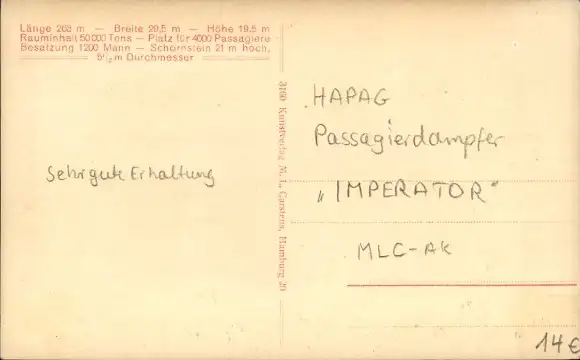 Länge 268 m — Breite 29,5 m — Höhe 19,5 m
Rauminhalt 50000 Tons — Platz für 4000 Passagiere
Besatzung 1200 Mann — Schornstein 21 m hoch,
5½ m Durchmesser
Sehr gute Erhaltung
3160 Kunstverlag M. L. Carstens, Hamburg 20
HAPAG
Passagierdampfer
„IMPERATOR"
MLC-AK
14€